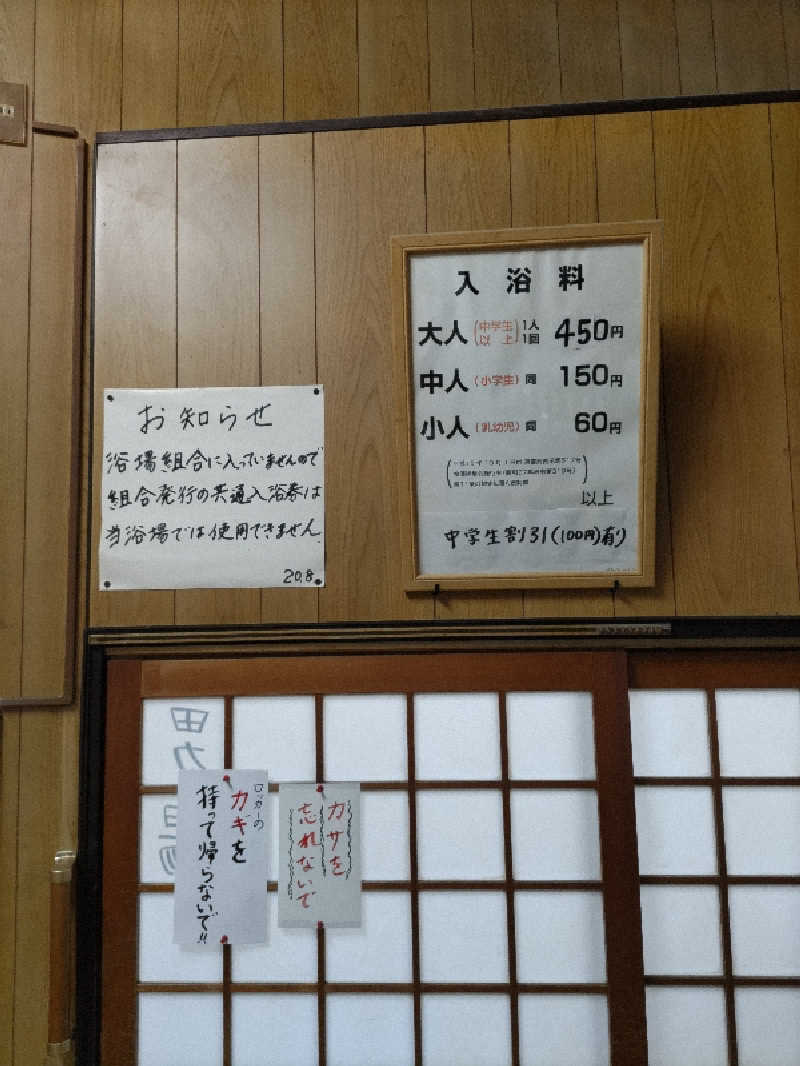 お知らせ
浴場組合に入っていませんので
組合発行の共通入浴券は
当浴場では使用できません。
20.8
入浴料
大人(中学生以上)1人1回 450円
中人(小学生)同 150円
小人(乳幼児)同 60円
以上
中学生割引(100円)有り
男
ロッカーの
カギを
持って帰らないで!!
カサを
忘れないで